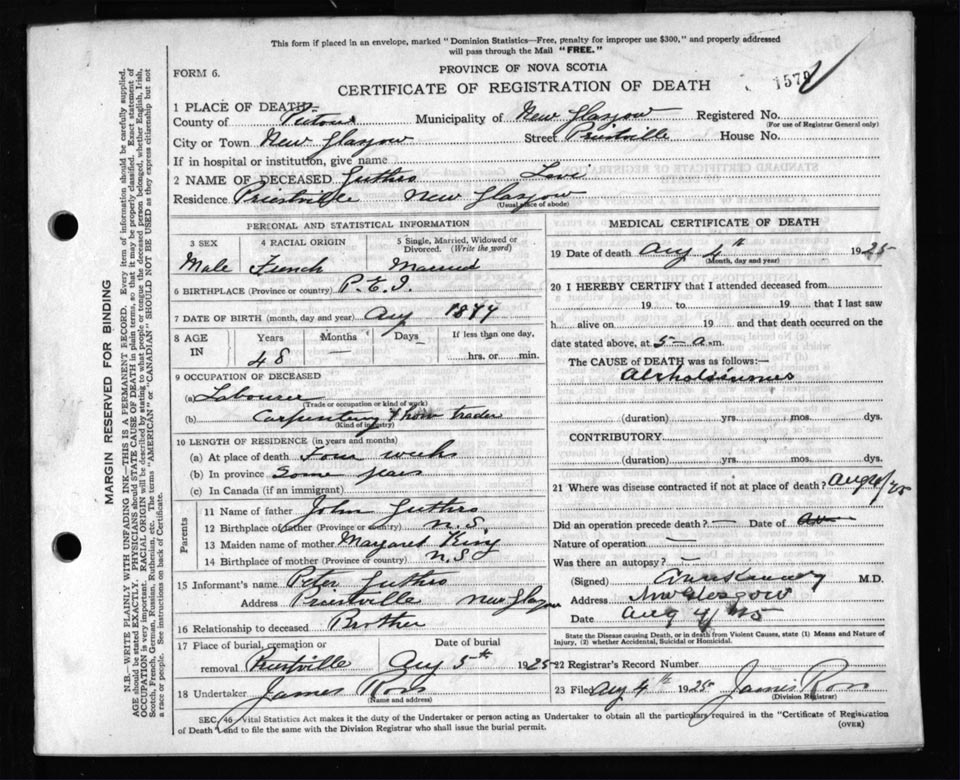 This form if placed in an envelope, marked "Dominion Statistics—Free, penalty for improper use $300," and properly addressed
will pass through the Mail "FREE."
PROVINCE OF NOVA SCOTIA
FORM 6.
CERTIFICATE OF REGISTRATION OF DEATH
1579
1 PLACE OF DEATH—
County of Pictou Municipality of New Glasgow Registered No.
(For use of Registrar General only)
City or Town New Glasgow Street Priestville House No.
If in hospital or institution, give name
2 NAME OF DECEASED Guthro Levi
Residence Priestville New Glasgow
(Usual place of abode)
PERSONAL AND STATISTICAL INFORMATION
3 SEX 4 RACIAL ORIGIN 5 Single, Married, Widowed or Divorced. (Write the word)
Male French Married
6 BIRTHPLACE (Province or country) P.E.I.
7 DATE OF BIRTH (month, day and year) Aug 1877
8 AGE IN Years Months Days If less than one day,
48 — hrs. or min.
9 OCCUPATION OF DECEASED
(a) Labourer
(Trade or occupation or kind of work)
(b) Carpentery trader
(Kind of industry)
10 LENGTH OF RESIDENCE (in years and months)
(a) At place of death Four weeks
(b) In province Some years
(c) In Canada (if an immigrant)
Parents
11 Name of father John Guthro
12 Birthplace of father (Province or country) N.S
13 Maiden name of mother Margaret King
14 Birthplace of mother (Province or country) N.S
15 Informant's name Peter Guthro
Address Priestville New Glasgow
16 Relationship to deceased Brother
17 Place of burial, cremation or Date of burial
removal Priestville Aug 5th 1925
18 Undertaker James Ross
(Name and address)
MEDICAL CERTIFICATE OF DEATH
19 Date of death Aug 4th 1925
(Month, day and year)
20 I HEREBY CERTIFY that I attended deceased from
19 to 19 that I last saw
h alive on 19 and that death occurred on the
date stated above, at 5 a.m.
The CAUSE OF DEATH was as follows:—
(duration) yrs. mos. dys.
CONTRIBUTORY.
(duration) yrs. mos. dys.
21 Where was disease contracted if not at place of death?
Did an operation precede death? — Date of
Nature of operation —
Was there an autopsy? —
(Signed) M.D.
Address New Glasgow
Date Aug 4/25
State the Disease causing Death, or in death from Violent Causes, state (1) Means and Nature of
Injury, (2) whether Accidental, Suicidal or Homicidal.
22 Registrar's Record Number
23 Filed Aug 4th 1925 James Ross
(Division Registrar)
SEC. 46 Vital Statistics Act makes it the duty of the Undertaker or person acting as Undertaker to obtain all the particulars required in the "Certificate of Registration
of Death" and to file the same with the Division Registrar who shall issue the burial permit.
(OVER)
MARGIN RESERVED FOR BINDING
N.B.—WRITE PLAINLY WITH UNFADING INK—THIS IS A PERMANENT RECORD. Every item of information should be carefully supplied.
AGE should be stated EXACTLY. PHYSICIANS should STATE CAUSE OF DEATH in plain terms, so that it may be properly classified. Exact statement of
OCCUPATION is very important. RACIAL ORIGIN will be described by stating to what people or tongue the deceased person belonged, whether English, Irish,
Scotch, French, German, Russian, Ruthenian, etc. The terms "AMERICAN" or "CANADIAN" SHOULD NOT BE USED as they express citizenship but not
a race or people. See instructions on back of Certificate.